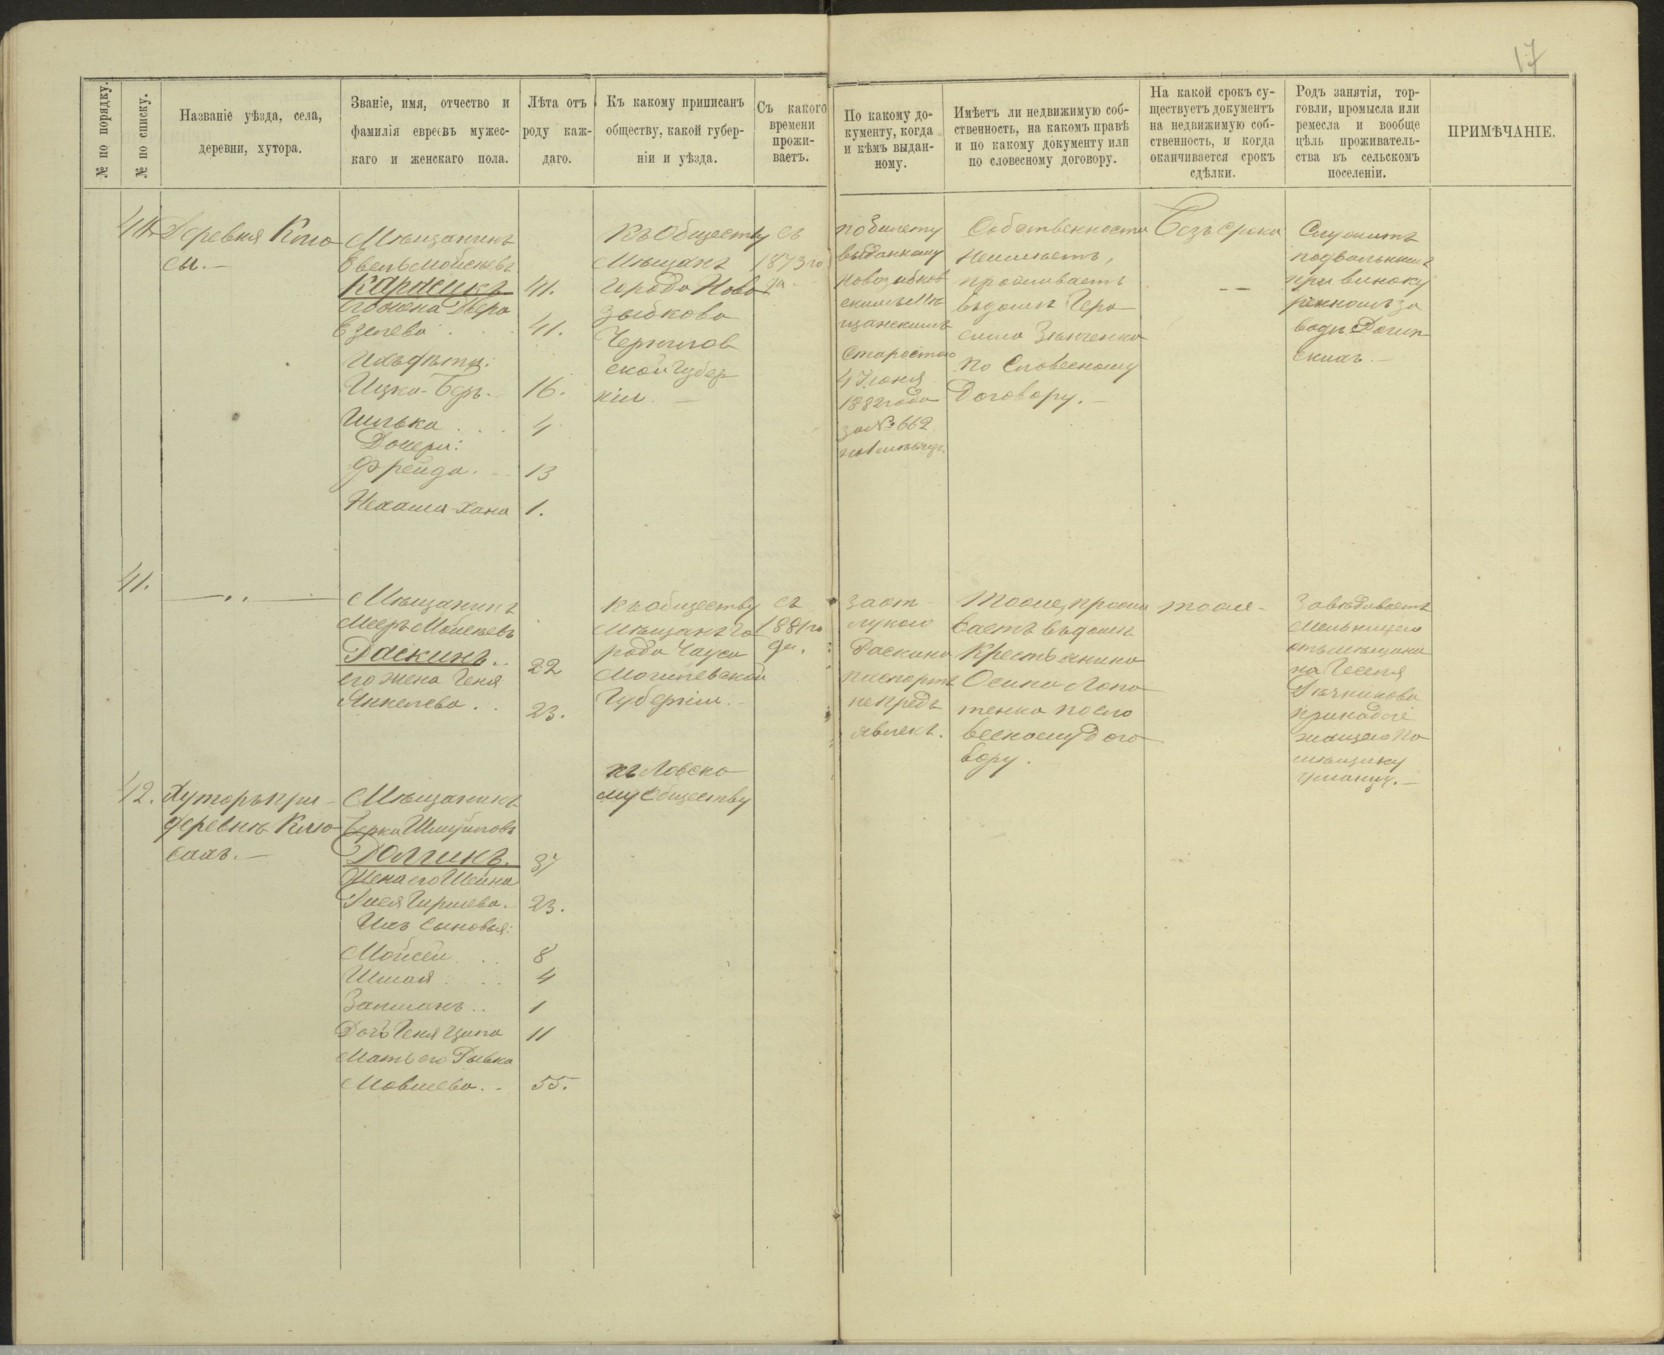 17
№ по порядку.
№ по списку.
Названіе уѣзда, села,
деревни, хутора.
Званіе, имя, отчество и
фамилія евреевъ мужес-
каго и женскаго пола.
Лѣта отъ
роду каж-
даго.
Къ какому приписанъ
обществу, какой губер-
ніи и уѣзда.
Съ какого
времени
прожи-
ваетъ.
По какому до-
кументу, когда
и кѣмъ выдан-
ному.
Имѣетъ ли недвижимую соб-
ственность, на какомъ правѣ
и по какому документу или
по словесному договору.
На какой срокъ су-
ществуетъ документъ
на недвижимую соб-
ственность, и когда
оканчивается срокъ
сдѣлки.
Родъ занятія, тор-
говли, промысла или
ремесла и вообще
цѣль проживатель-
ства въ сельскомъ
поселеніи.
ПРИМѢЧАНІЕ.
Деревня Клю
сы. —
Мѣщанинъ
Мойсеевъ
Карасикъ 41.
его жена Двера
41.
Ихъ дѣти:
Ицка-Беръ. 16.
4
Дочери:
Фрейда. 13
Нехама-Хана 1.
Къ Обществу
Мѣщанъ
города Ново
зыбкова
Чернигов
ской Губер
ніи. —
Съ
1873 го
да.
по билету
выданному
Новозыбков
скимъ Мѣ
щанскимъ
Старостою
4 Іюня
1882 года
за № 662
Собственности
Неимѣетъ,
проживаетъ
въ домѣ Гера
сима Зинченка
по Словесному
Договору. —
Безъ срока
— —
Служитъ
подвальнымъ
при виноку
ренномъ за
водѣ
41.
— „ —
Мѣщанинъ
Мееръ Мойсеевъ
Раскинъ. 22
его жена Геня
Янкелева. 23.
Къ обществу
Мѣщанъ го
рода Чаусы
Могилевской
Губерніи. —
съ
1881 го
да.
за от
лукою
Раскина
паспортъ
не предъ
явленъ.
Тоже, прожи
ваетъ въ домѣ
Крестьянина
Осипа Лопа
тенка по сло
весному Дого
вору.
тоже —
Завѣдываетъ
Мельницею
отъ мѣщанина
принадле
жащею По
мѣщику
42.
Хуторъ при
деревнѣ Клю
сахъ. —
Мѣщанинъ
Берка Шмуйловъ
Долгинъ. 37
Жена его Шейна
23.
Ихъ Сыновья:
Мойсей 8
4
Залманъ 1
Дочь Геня Ципа 11
Мать его Рывка
Мовшева. 55.
къ Ловско
му Обществу